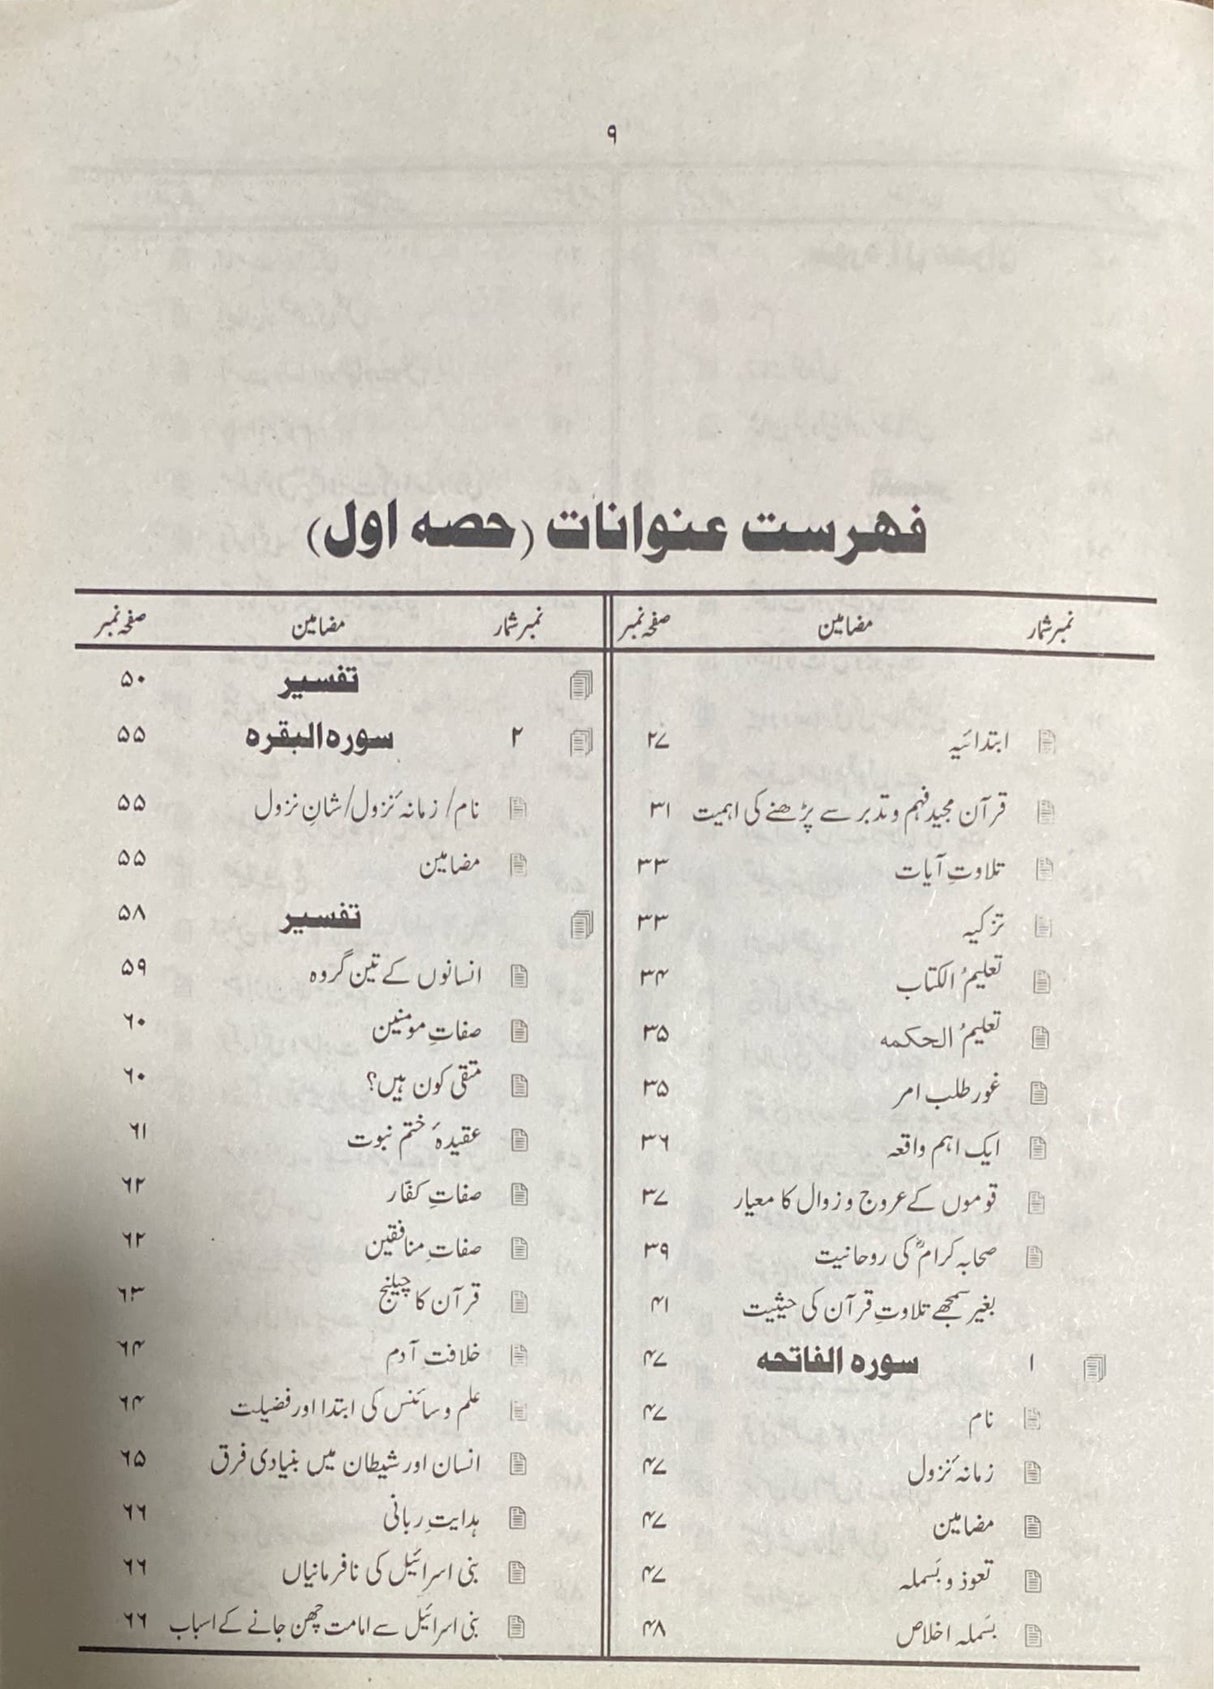 ۹
فہرست عنوانات (حصہ اول)
نمبر شمار مضامین صفحہ نمبر
ابتدائیہ ۲۷
قرآن مجید فہم و تدبر سے پڑھنے کی اہمیت ۳۱
تلاوتِ آیات ۳۳
تزکیہ ۳۳
تعلیمُ الکتاب ۳۴
تعلیمُ الحکمہ ۳۵
غور طلب امر ۳۵
ایک اہم واقعہ ۳۶
قوموں کے عروج و زوال کا معیار ۳۷
صحابہ کرامؓ کی روحانیت ۳۹
بغیر سمجھے تلاوتِ قرآن کی حیثیت ۴۱
۱ سورہ الفاتحہ ۴۷
نام ۴۷
زمانۂ نزول ۴۷
مضامین ۴۷
تعوذ و بَسملہ ۴۷
بَسملہ اخلاص ۴۸
نمبر شمار مضامین صفحہ نمبر
تفسیر ۵۰
۲ سورہ البقرہ ۵۵
نام/ زمانۂ نزول/ شانِ نزول ۵۵
مضامین ۵۵
تفسیر ۵۸
انسانوں کے تین گروہ ۵۹
صفاتِ مومنین ۶۰
متقی کون ہیں؟ ۶۰
عقیدۂ ختم نبوت ۶۱
صفاتِ کفّار ۶۲
صفاتِ منافقین ۶۲
قرآن کا چیلنج ۶۳
خلافتِ آدم ۶۴
علم و سائنس کی ابتدا اور فضیلت ۶۴
انسان اور شیطان میں بنیادی فرق ۶۵
ہدایتِ ربانی ۶۶
بنی اسرائیل کی نافرمانیاں ۶۶
بنی اسرائیل سے امامت چھن جانے کے اسباب ۶۶